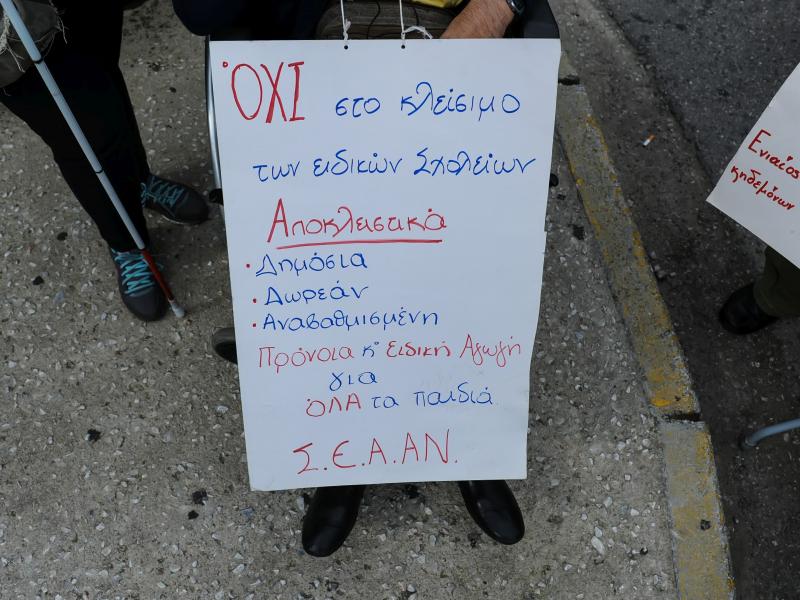 ΌΧΙ στο κλείσιμο
των ειδικών Σχολείων
Αποκλειστικά
• Δημόσια
• Δωρεάν
• Αναβαθμισμένη
Πρόνοια κ' Ειδική Αγωγή
για
ΌΛΑ τα παιδιά
Σ.Ε.Α.ΑΝ.
Ενιαίος
κηδεμόνων